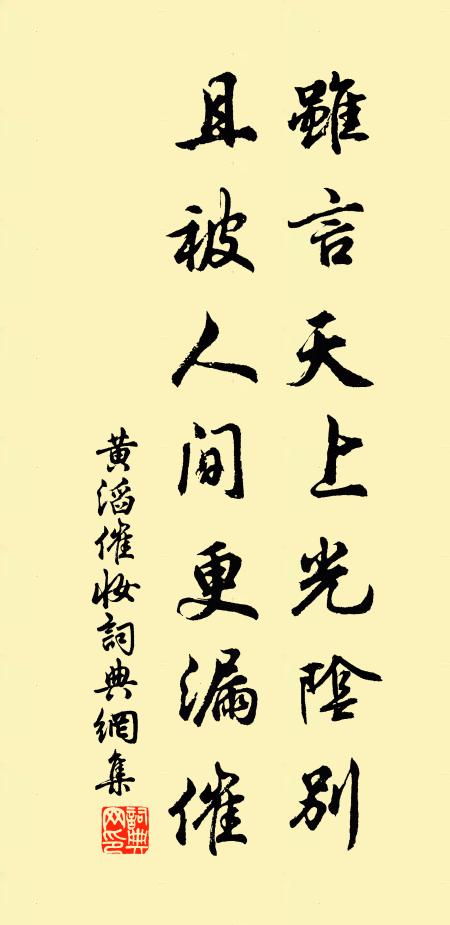 雖言天上光陰別
且被人間更漏催
黃滔催妝詞典網集
詞典網印